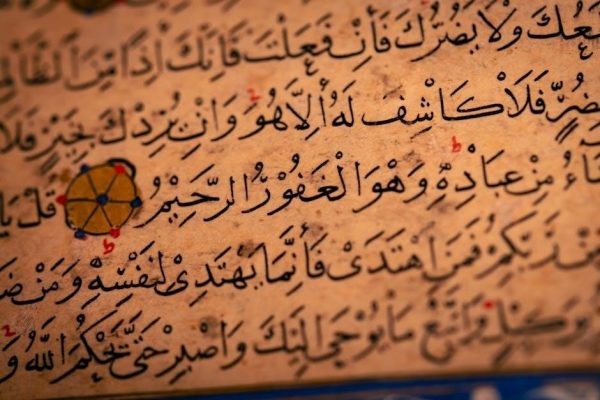 يَنْفَعُكَ وَلَا يَضُرُّكَ فَاِنْ فَعَلْتَ فَاِنَّكَ اِذًا مِنَ الظَّالِمِ
بِضُرٍّ فَلَا كَاشِفَ لَهُ اِلَّا هُوَ وَاِنْ يُرِدْكَ بِخَيْرٍ فَلَا
يَشَاءُ مِنْ عِبَادِهِ وَهُوَ الْغَفُورُ الرَّحِيْمُ قُلْ يَا
مِنْ رَبِّكُمْ فَمَنِ اهْتَدَى فَاِنَّمَا يَهْتَدِى لِنَفْسِهِ وَمَنْ ضَ
بِوَكِيلٍ وَاتَّبِعْ مَا يُوحٰى اِلَيْكَ وَاصْبِرْ حَتّٰى يَحْكُمَ اللّٰهُ وَ